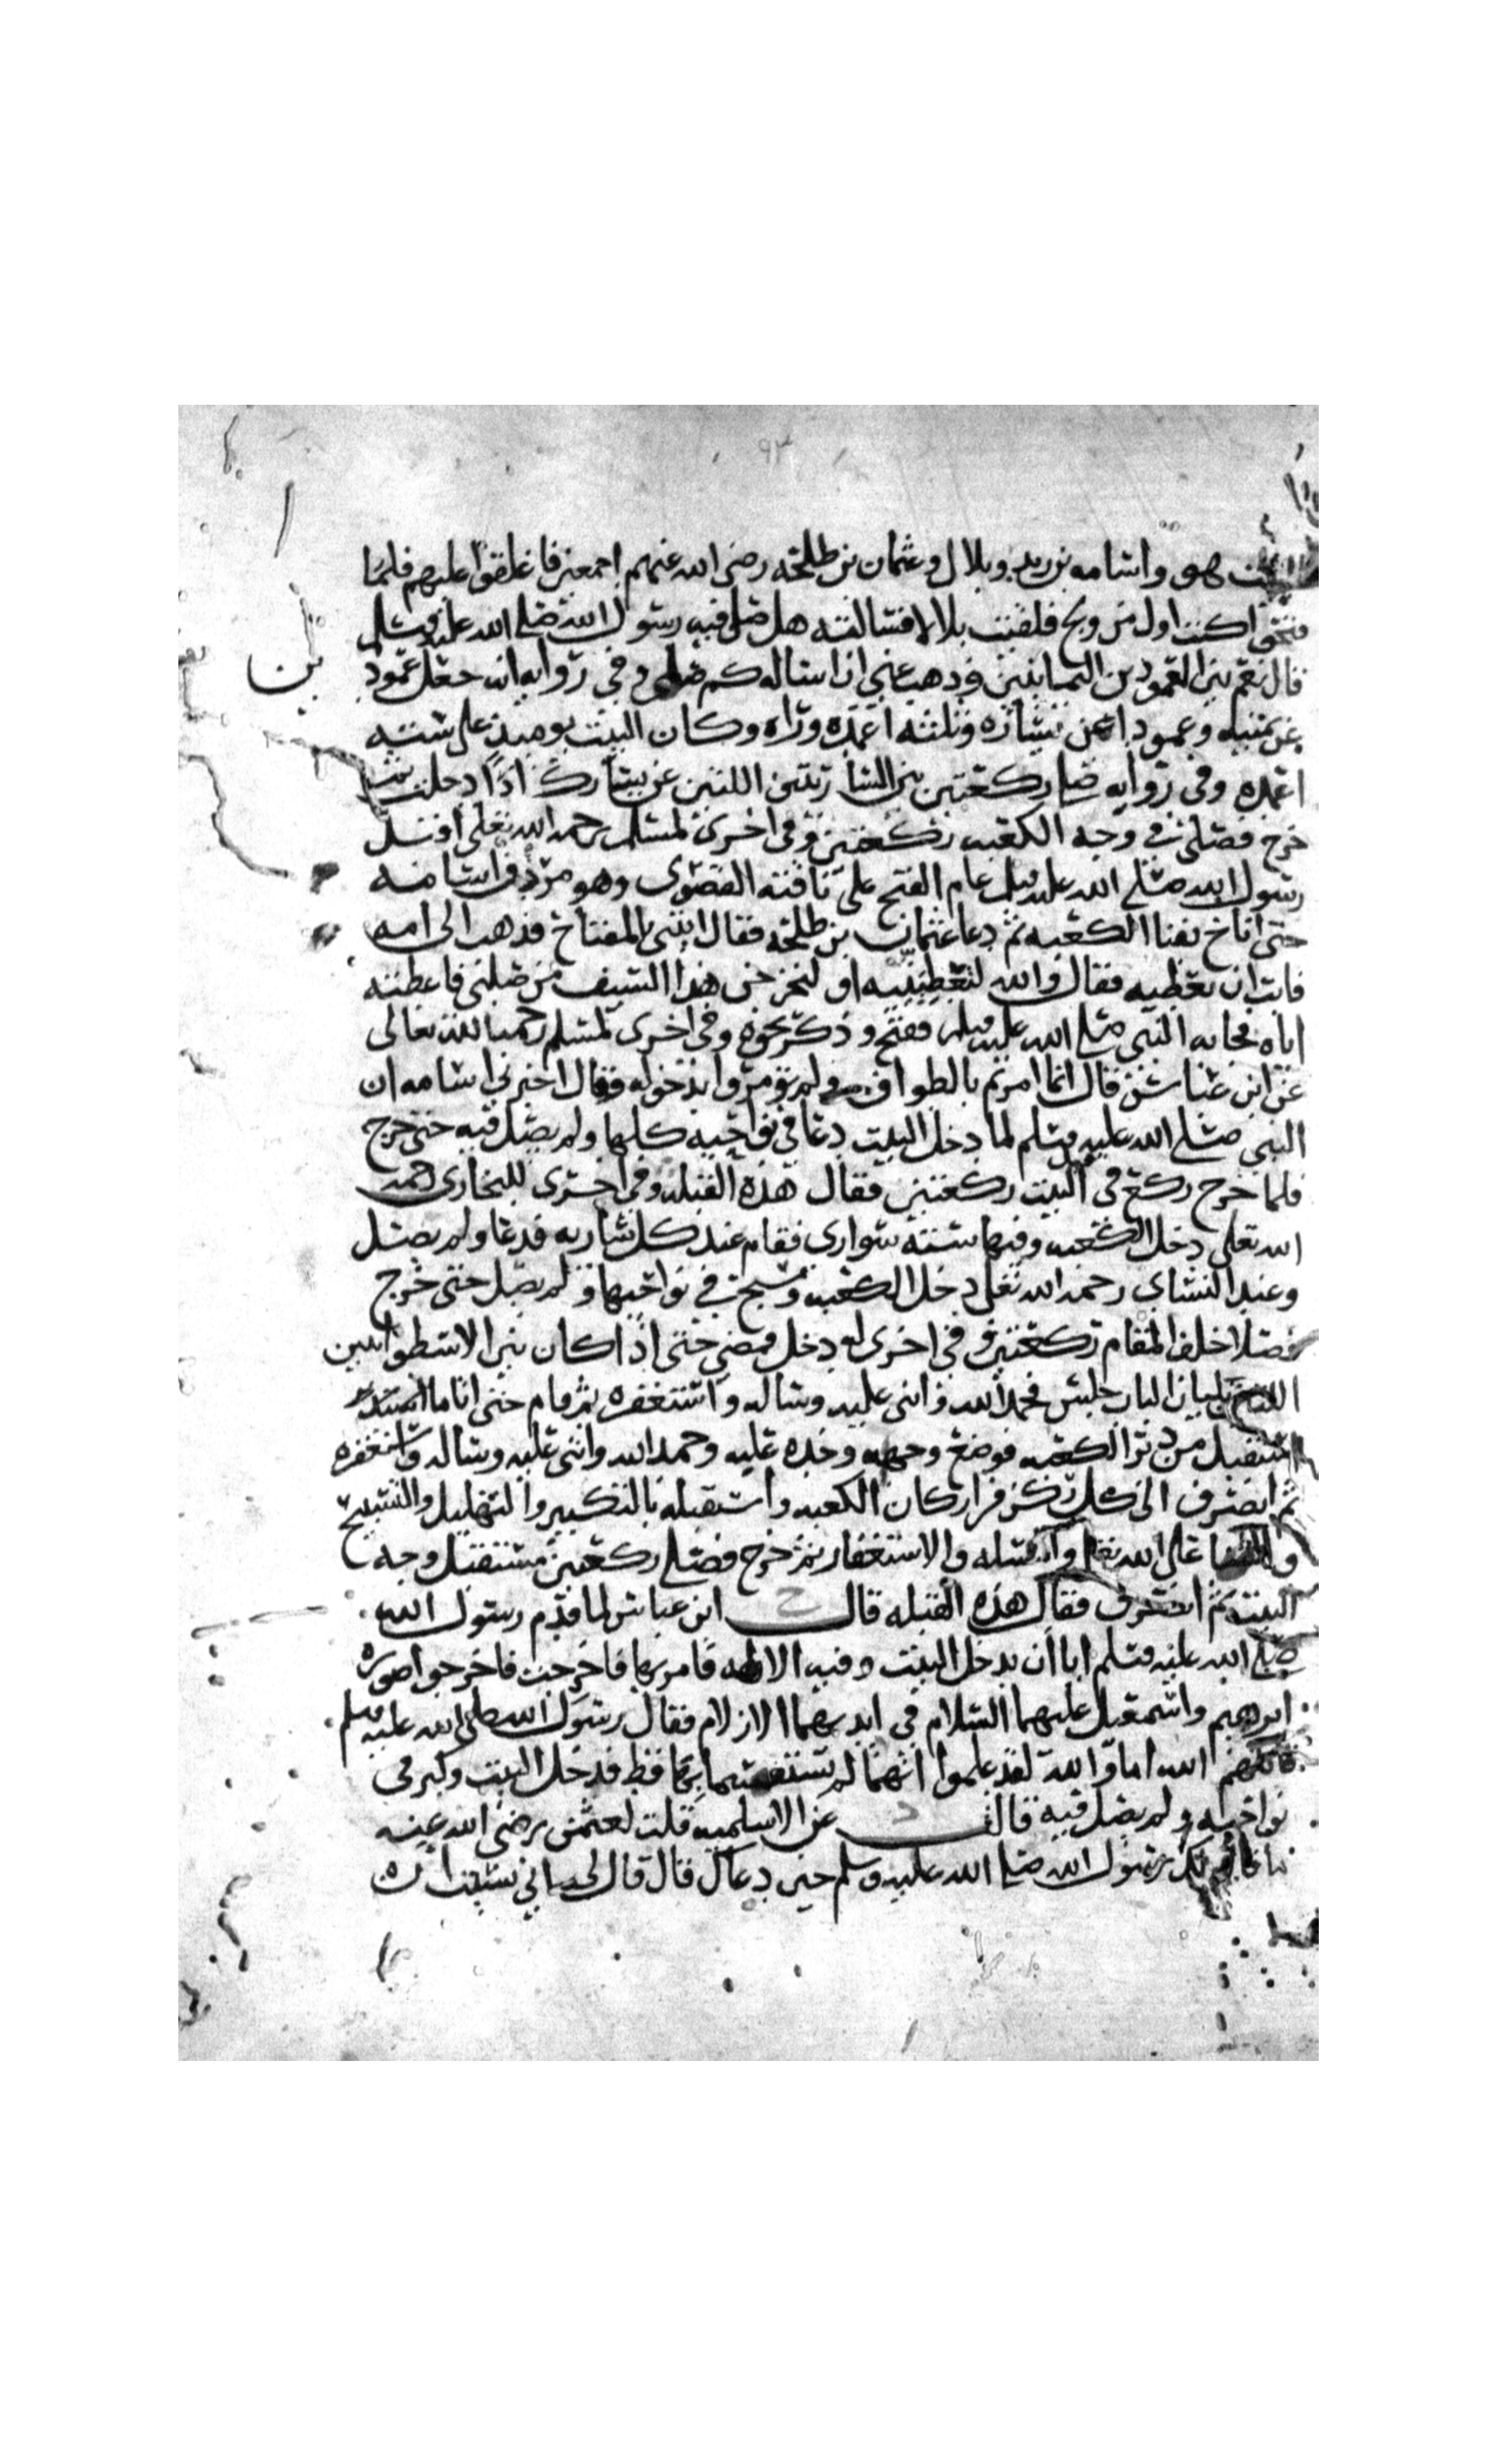 ٩٣
البيت هو واسامه بن زيد وبلال وعثمان بن طلحه رضى الله عنهم اجمعين فاغلقوا عليهم فلما
فتحوا كنت اول من ولج فلقيت بلالا فسالته هل صلى فيه رسول الله صلى الله عليه وسلم
قال نعم بين العمودين اليمانيين وذهب عني ان اساله كم صلى وفي روايه انه جعل عمودا
عن يمينه وعمودا عن يساره وثلثه اعمده وراه وكان البيت يوميذ على سته
اعمده وفى روايه صلى ركعتين بين الساريتين اللتين عن يسارك اذا دخلت ثم
خرج فصلى في وجه الكعبه ركعتين وفى اخرى لمسلم رحمه الله تعلى اقبل
رسول الله صلى الله عليه وسلم عام الفتح على ناقته القصوى وهو مردف اسامه
حتى اناخ بفنا الكعبه ثم دعا عثمان بن طلحه فقال ايتنى بالمفتاح فذهب الى امه
فابت ان تعطيه فقال والله لتعطينيه او لتخرجن هذا السيف من صلبى فاعطته
اياه فجا به النبى صلى الله عليه وسلم ففتح وذكر نحوه وفى اخرى لمسلم رحمه الله تعالى
عن ابن عباس قال انما امرتم بالطواف ولم تومروا بدخوله وقال اخبرني اسامه ان
النبى صلى الله عليه وسلم لما دخل البيت دعا فى نواحيه كلها ولم يصل فيه حتى خرج
فلما خرج ركع فى البيت ركعتين فقال هذه القبله وفى اخرى للبخارى رحمه
الله تعلى دخل الكعبه وفيها سته سوارى فقام عند كل ساريه فدعا ولم يصل
وعند النساي رحمه الله تعلى دخل الكعبه وسبح في نواحيها ولم يصل حتى خرج
فصلا خلف المقام ركعتين وفي اخرى له دخل فمضى حتى اذا كان بين الاسطوانتين
اللتين تليان الباب جلس فحمد الله واثنى عليه وساله واستغفره ثم قام حتى اتا ما
استقبل من دبر الكعبه فوضع وجهه وخده عليه وحمد الله واثنى عليه وساله واستغفره
ثم انصرف الى كل ركن من اركان الكعبه واستقبله بالتكبير والتهليل والتسبيح
والثنا على الله تعلى والمسله والاستغفار ثم خرج فصلى ركعتين مستقبل وجه
البيت ثم انصرف فقال هذه القبله قال ح ابن عباس لما قدم رسول الله
صلى الله عليه وسلم ابا ان يدخل البيت وفيه الالهه فامر بها فاخرجت فاخرجوا صوره
ابرهيم واسمعيل عليهما السلام في ايديهما الازلام فقال رسول الله صلى الله عليه وسلم
قاتلهم الله اما والله لقد علموا انهما لم يستقسما بها قط فدخل البيت وكبر في
نواحيه ولم يصل فيه قال د عن الاسلميه قلت لعثمن رضى الله عنه
ما قال لك رسول الله صلى الله عليه وسلم حين دعاك قال قال لى انى نسيت ان
بن